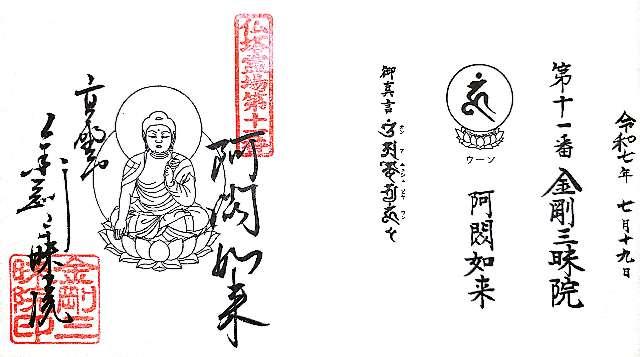 令和七年 七月十九日
第十一番 金剛三昧院
ウーン
阿閦如来
御真言
仏塔霊場第十一番
阿閦如来
高野山
金剛三昧院
金剛三
昧院印